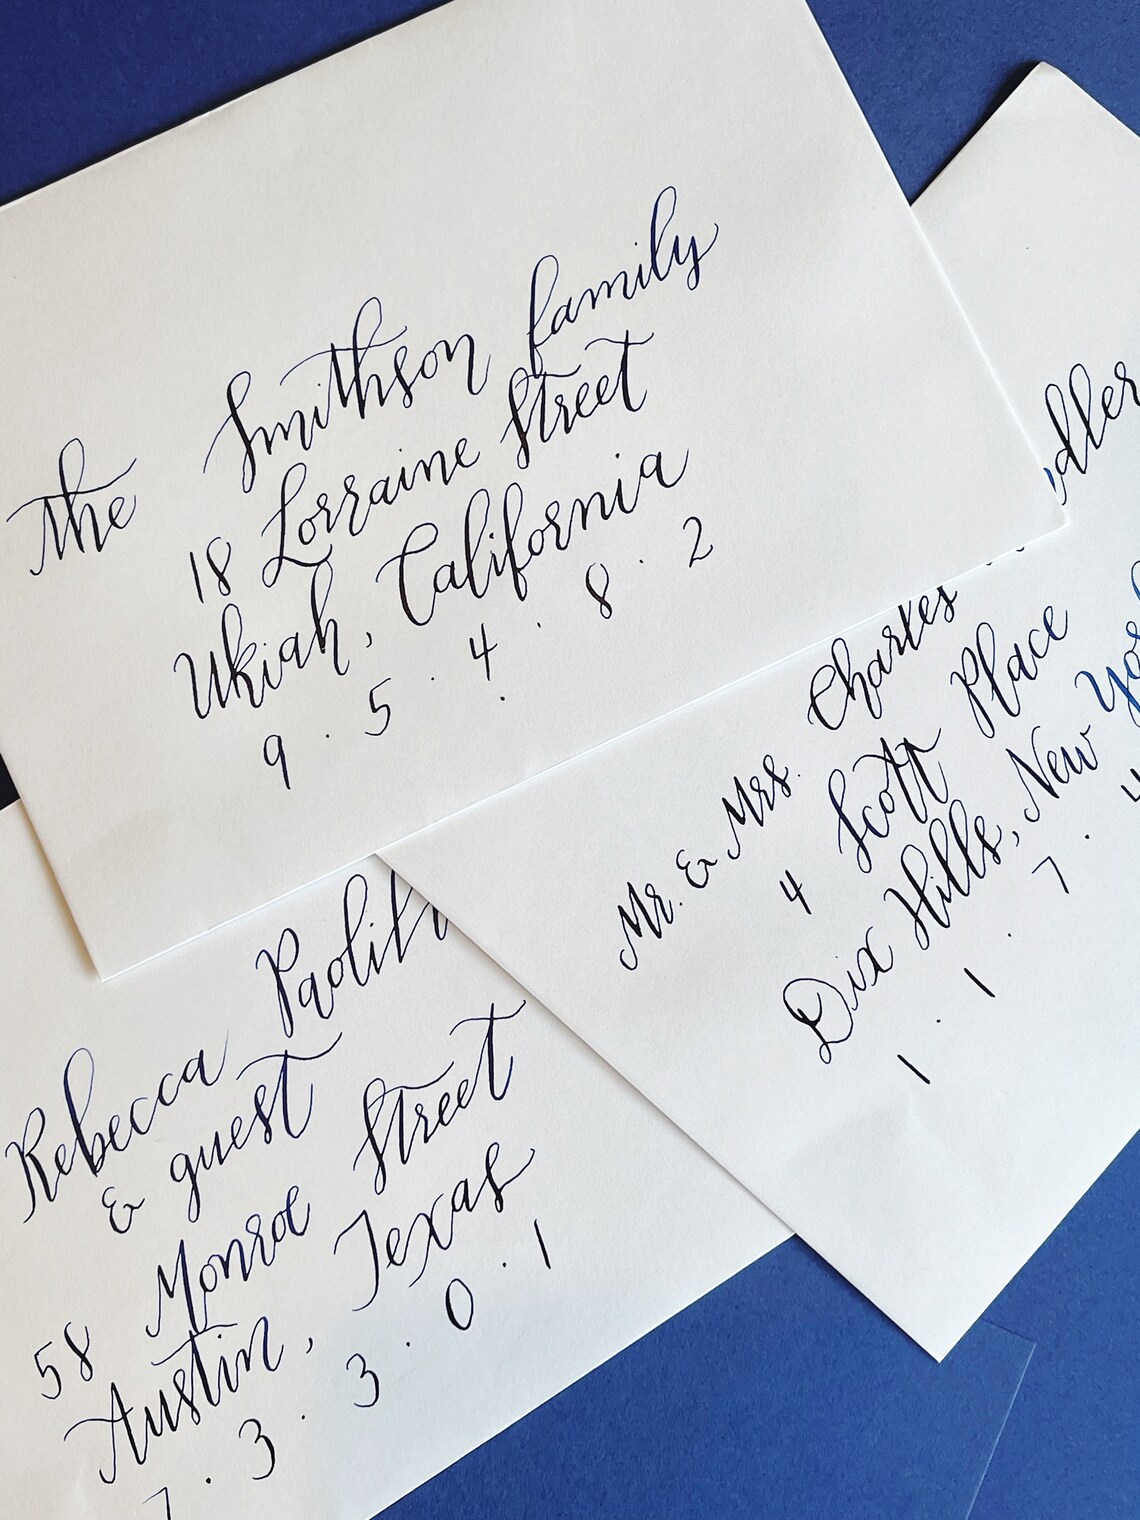 The Smithson family
18 Lorraine Street
Ukiah, California
9 · 5 · 4 · 8 · 2
Mr. & Mrs. Charles
4 Scott Place
Dix Hills, New
1 · 1 · 7 · 4
Rebecca
& guest
58 Monroe Street
Austin, Texas
7 · 3 · 3 · 0 · 1